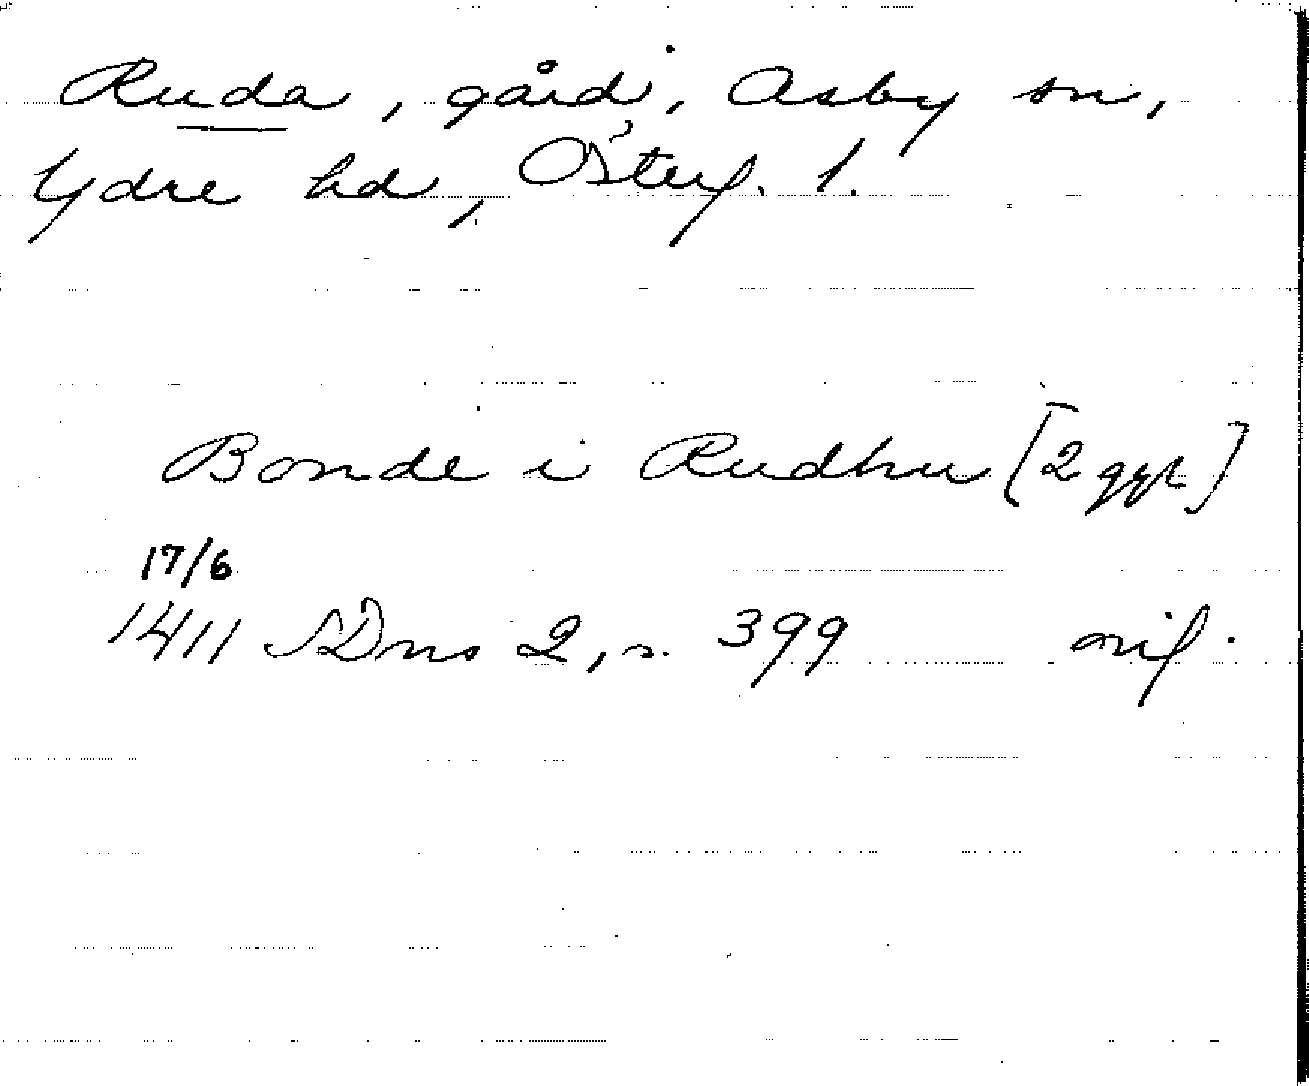 Ruda, gård, Asby sn,
Ydre hd, Österg. l.
Bonde i Rudhu [2 ggr]
17/6
1411 SDns 2, s. 399 orig.